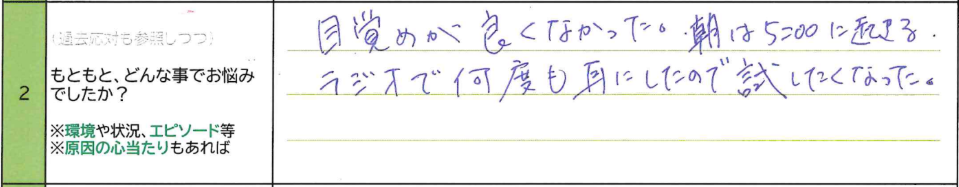 (過去応対も参照しつつ)
2
もともと、どんな事でお悩み
でしたか？
※環境や状況、エピソード等
※原因の心当たりもあれば
目覚めが良くなかった。朝は5:00に起きる.
ラジオで何度も耳にしたので試したくなった。